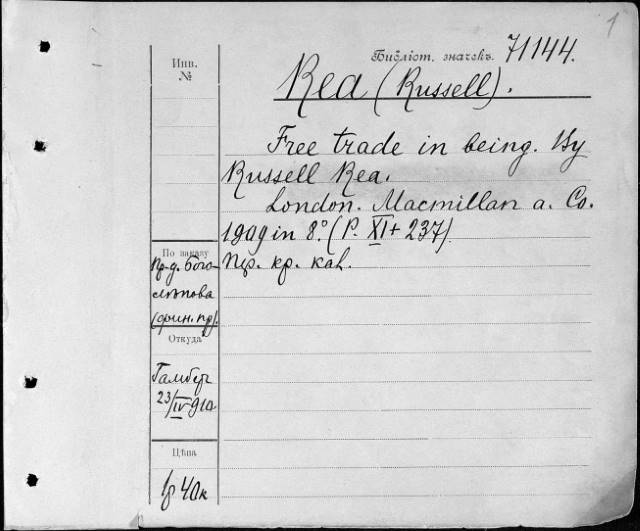 1
Библіот. значекъ. 71144.
Инв.
№
Rea (Russell).
Free trade in being. By
Russell Rea.
London. Macmillan a. Co.
1909 in 8° (P. XI + 237).
По заказу
Пр. д. Бого-
лѣпова
(фин. пр).
Пер. кр. каl.
Откуда
Гамбург
23/IV 910.
Цѣна
40к